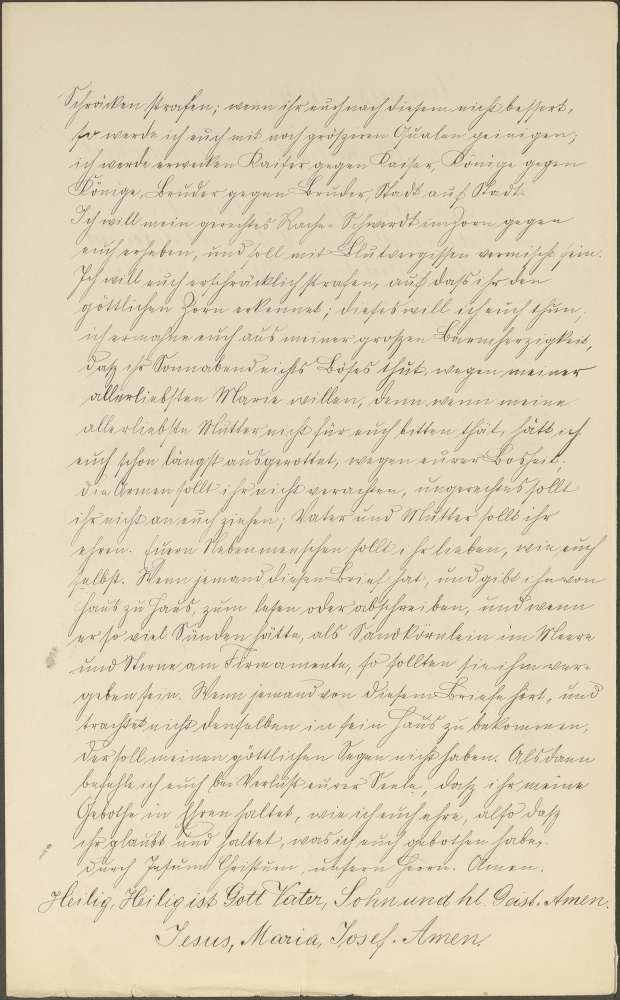 Schräcken strafen; wenn ihr euch nach diesem nicht bessert,
so werde ich euch mit noch gröszeren Qualen peinigen;
ich werde erwecken Kaiser gegen Kaiser, Könige gegen
Könige, Bruder gegen Bruder, Stadt auf Stadt.
Ich will mein gerechtes Rache-Schwerdt im Zorn gegen
euch erheben, und soll mit Blutvergissen vermischt sein.
Ich will euch erschräcklich strafen, auf dass ihr den
göttlichen Zorn erkennet; dieses will ich euch thun,
ich ermahne euch aus meiner groszen Barmherzigkeit,
dasz ihr Sonnabend nichts Böses thut wegen meiner
allerliebsten Marie willen, denn wenn meine
allerliebste Mutter nicht für euch bitten thät, hätt ich
euch schon längst ausgerottet, wegen eurer Bosheit;
die Armen sollt ihr nicht verachten, ungerechtes sollt
ihr nicht an euch ziehen; Vater und Mutter sollt ihr
ehren. Euern Nebenmenschen sollt ihr lieben, wie euch
selbst. Wenn jemand diesen Brief hat, und gibt ihn von
Haus zu Haus, zum lesen oder abschreiben, und wenn
er so viel Sünden hätte, als Sandkörnlein im Meere
und Sterne am Firmamente, so sollten sie ihm ver-
geben sein. Wenn jemand von diesem Briefe hört, und
trachtet nicht denselben in sein Haus zu bekommen,
der soll meinen göttlichen Segen nicht haben. Alsdann
befehle ich euch bei Verlust eurer Seele, dasz ihr meine
Gebothe in Ehren haltet, wie ich euch ehre, also dasz
ihr glaubt und haltet, was ich euch gebothen habe,
durch Jesum Christum, unsern Herrn. Amen.
Heilig, Heilig ist Gott Vater, Sohn und hl. Geist. Amen.
Jesus, Maria, Josef. Amen.